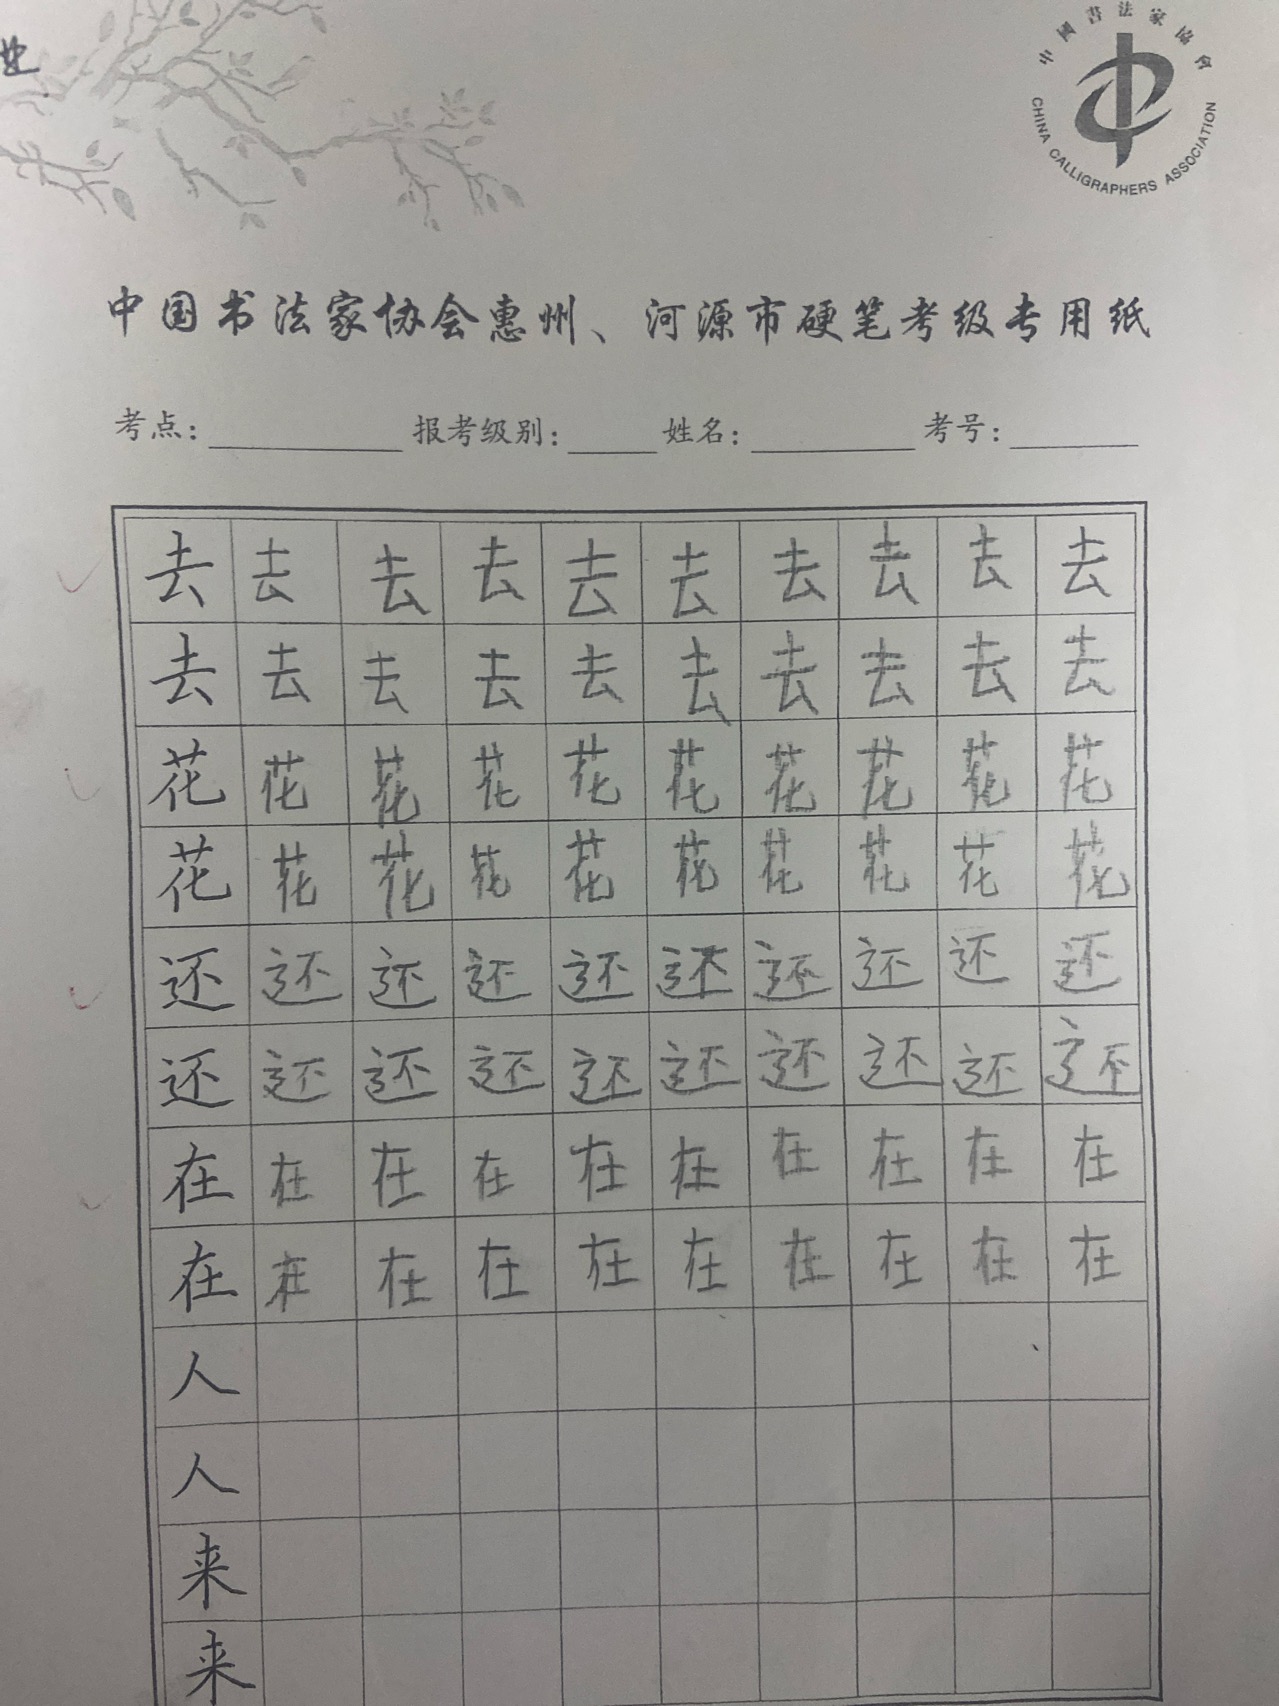 中國書法家協會
CHINA CALLIGRAPHERS ASSOCIATION
中国书法家协会惠州、河源市硬笔考级专用纸
考点: 报考级别: 姓名: 考号:
去去去去去去去去去去
去去去去去去去去去去
花花花花花花花花花花
花花花花花花花花花花
还还还还还还还还还还
还还还还还还还还还还
在在在在在在在在在在
在在在在在在在在在在
人
人
来
来